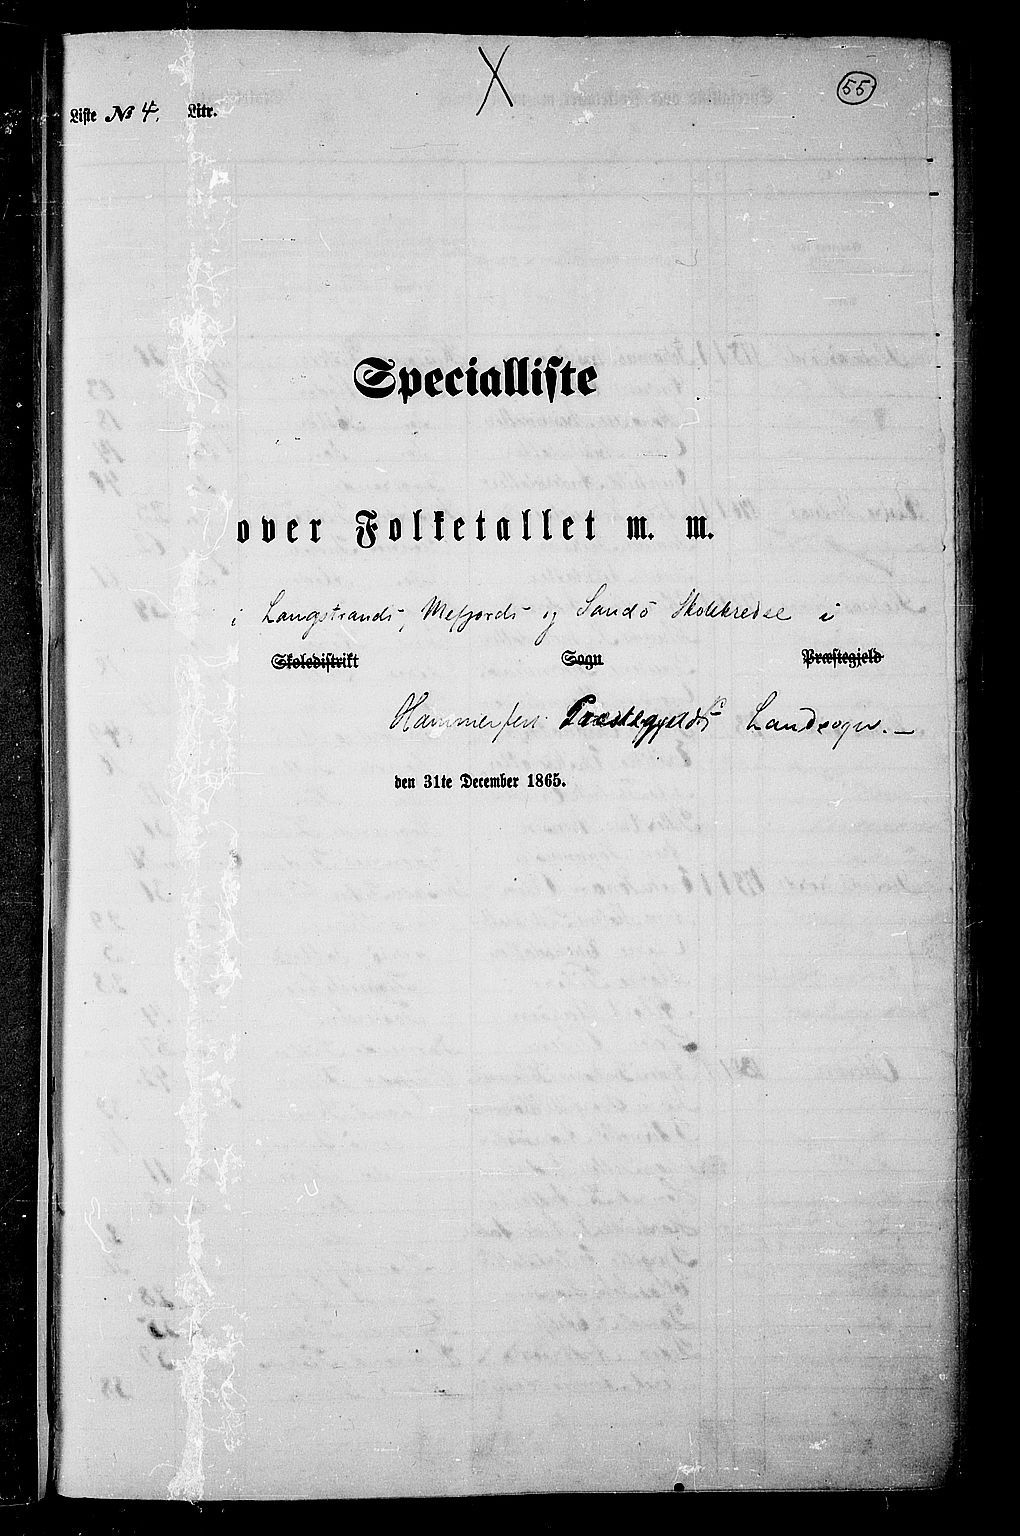 55
Liste № 4. Litr.
Specialliste
over Folketallet m. m.
i Langstrands, Mefjords og Sandö Skolekredse i
Skoledistrikt Sogn Præstegjeld
Hammerfest Præstegjelds Landsogn. —
den 31te December 1865.